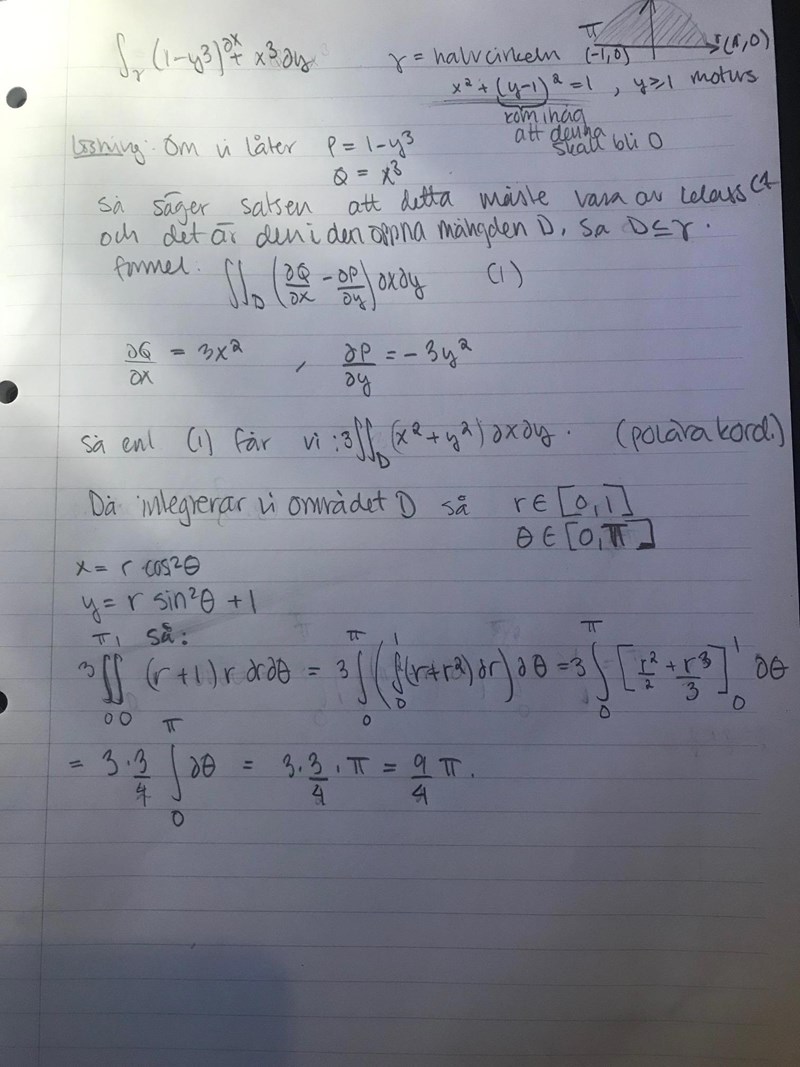 ∫_γ (1-y³)∂x + x³∂y   γ = halvcirkeln
π (-1,0) (1,0)
x² + (y-1)² = 1 , y≥1 moturs
kom ihåg
att denna
skall bli 0
Lösning: Om vi låter P = 1-y³
Q = x³
Så säger satsen att detta måste vara av klass C1
och det är den i den öppna mängden D, så D⊆γ.
formel: ∬_D (∂Q/∂x - ∂P/∂y) ∂x∂y   (1)
∂Q/∂x = 3x² , ∂P/∂y = -3y²
Så enl (1) får vi: 3∬_D (x²+y²) ∂x∂y. (polära kord.)
Då integrerar vi området D så r ∈ [0,1]
θ ∈ [0,π]
x = r cos²θ
y = r sin²θ + 1
så:
3 ∫_0^π ∫_0^1 (r+1) r ∂r∂θ = 3 ∫_0^π (∫_0^1 (r+r²)∂r) ∂θ = 3 ∫_0^π [r²/2 + r³/3]_0^1 ∂θ
= 3·3/4 ∫_0^π ∂θ = 3·3/4·π = 9/4 π.